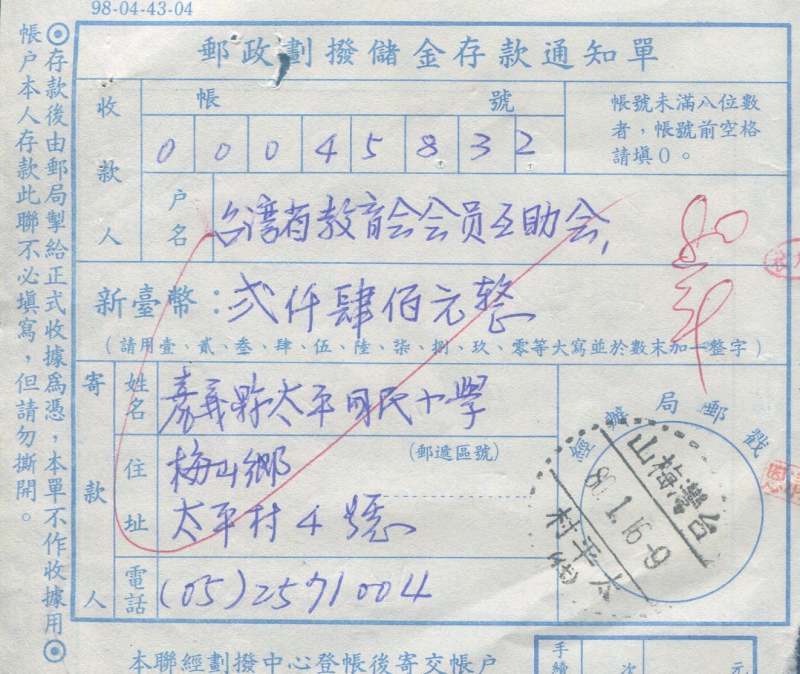 98-04-43-04
郵政劃撥儲金存款通知單
◎存款後由郵局掣給正式收據為憑，本單不作收據用◎
帳戶本人存款此聯不必填寫，但請勿撕開。
收款人
帳號
0 0 0 4 5 8 3 2
帳號未滿八位數
者，帳號前空格
請填0。
戶名
台湾省教育会会员互助会
新臺幣：弍仟肆佰元整
（請用壹、貳、叁、肆、伍、陸、柒、捌、玖、零等大寫並於數末加一整字）
寄款人
姓名
嘉義縣太平国民小學
住址
(郵遞區號)
梅山鄉
太平村4號
電話
(05)2571004
經辦局郵戳
台灣梅山
80.1.16-9
太平村
(代)
本聯經劃撥中心登帳後寄交帳戶
手續
次
元